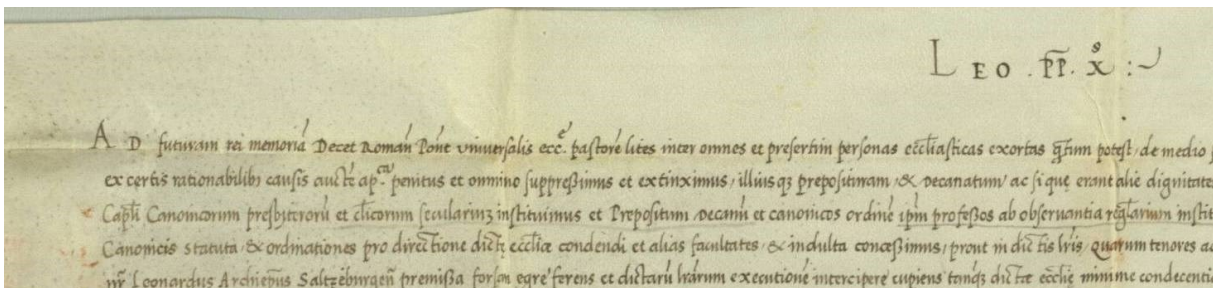 LEO . PP. X :
AD futuram rei memoriā Decet Romań Pont̄ universalis ecc̄e pastorē lites inter omnes et presertim personas eccl̄iasticas exortas q̄tum potest, de medio
ex certis rationabilibꝫ causis auct̄e ap.ca penitus et omnino suppreßimus et extinximus, illiusqꝫ preposituram, & decanatum, ac si que erant alie dignitate
Capl̄i Canonicorum presbiterorū et cl̄icorum seculariuꝫ instituimus et Prepositum decanū et canonicos ordinē ip̄m profeßos ab observantia regl̄arium instit
Canonicis statuta, & ordinationes pro directione dictę eccl̄ię condendi et alias facultates, & indulta conceßimus, prout in dictis l̄ris, quarum tenores ac
Leonardus Archiep̄us Saltzeburgen̄ premißa forsan egre ferens et dictarū l̄rarum executionē intercipere cupiens tamqꝫ dictę eccl̄ię minime condecenti